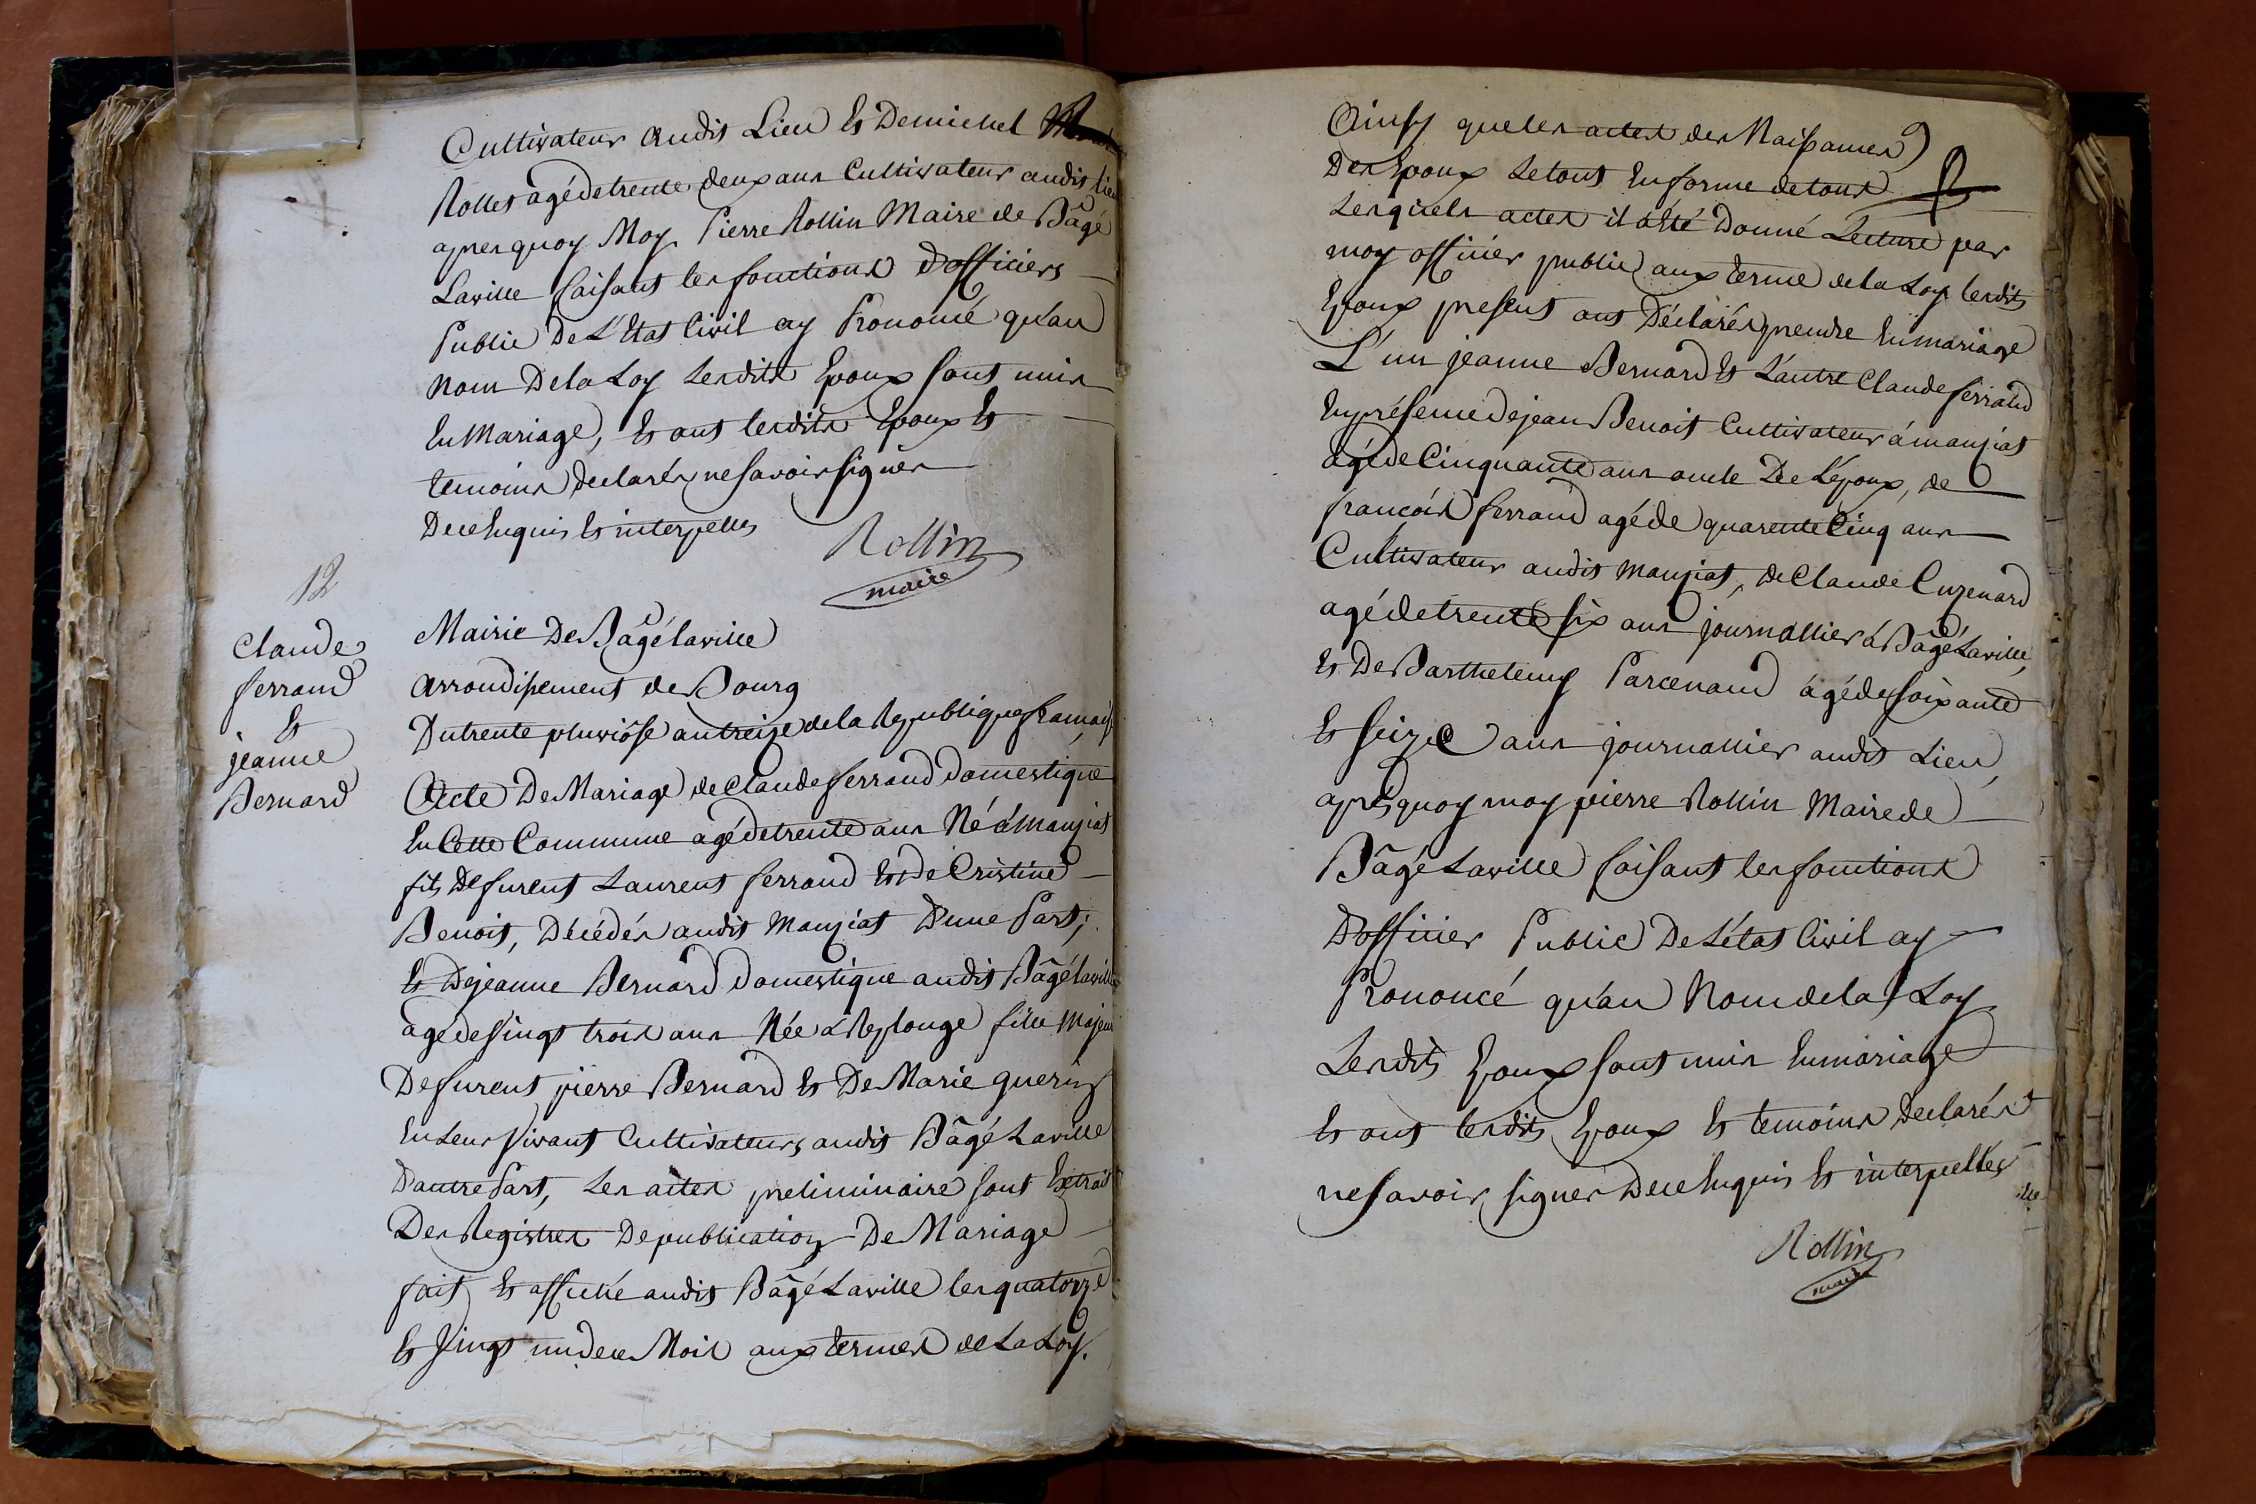 Cultivateur audit Lieu et De michel
Rollet agé de trente deux ans Cultivateur audit lieu
apres quoy Moy Pierre Rollin Maire de Bâgé
Laville faisant les fonctions d'officiers
Public De L'Etat Civil ay Prononcé qu'au
Nom De la Loy Lesdits Epoux sont unis
En Mariage, et ont lesdits Epoux et
temoins declarés ne savoir signer
De ce Enquis et interpellés
Rollin
maire
12
Claude
ferrand
et
jeanne
Bernard
Mairie De Bâgé laville
Arrondissement de Bourg
Du trente pluviôse an treize de la Republique francaise
Acte De Mariage de Claude ferrand Domestique
En Cette Commune agé de trente ans Né à Manziat
fils Defurent Laurent ferrand et de Cristine
Benoit, Décédés audit Manziat D'une Part;
Et De jeanne Bernard Domestique audit Bâgé laville
agé de vingt trois ans Née à Replonge fille Majeur
Defurent pierre Bernard et De Marie guerin
En Leur Vivant Cultivateurs audit Bâgé Laville
D'autre Part, Les actes preliminaire sont Extrait
Des Registres De publication De Mariage
fait et affiché audit Bâgé Laville les quatorze
et Vingt un de ce Mois aux termes de La Loy.
Ainsy que les actes des Naissances
Des Epoux Le tout En forme de tout
Lesquels actes il a été Donné Lecture par
moy officier public aux terme de la Loy lesdits
Epoux present ont Déclarés prendre En mariage
L'un jeanne Bernard et L'autre Claude ferrand
En présence de jean Benoit Cultivateur à manziat
agé de Cinquante ans oncle De L'époux, de
francois ferrand agé de quarente Cinq ans
Cultivateur audit Manziat, de Claude Cuzenard
agé de trente six ans journallier à Bâgé Laville,
et De Barthelemy Parcenaud agé de soixante
et seize ans journallier audit Lieu,
après quoy moy pierre Rollin Maire de
Bâgé Laville faisant les fonctions
D'officier Public De L'état Civil ay
Prononcé qu'au Nom de la Loy
Lesdits Epoux sont unis En mariage
et ont lesdits Epoux et temoins Declarés
ne savoir signer De ce Enquis et interpellés
Rollin
maire